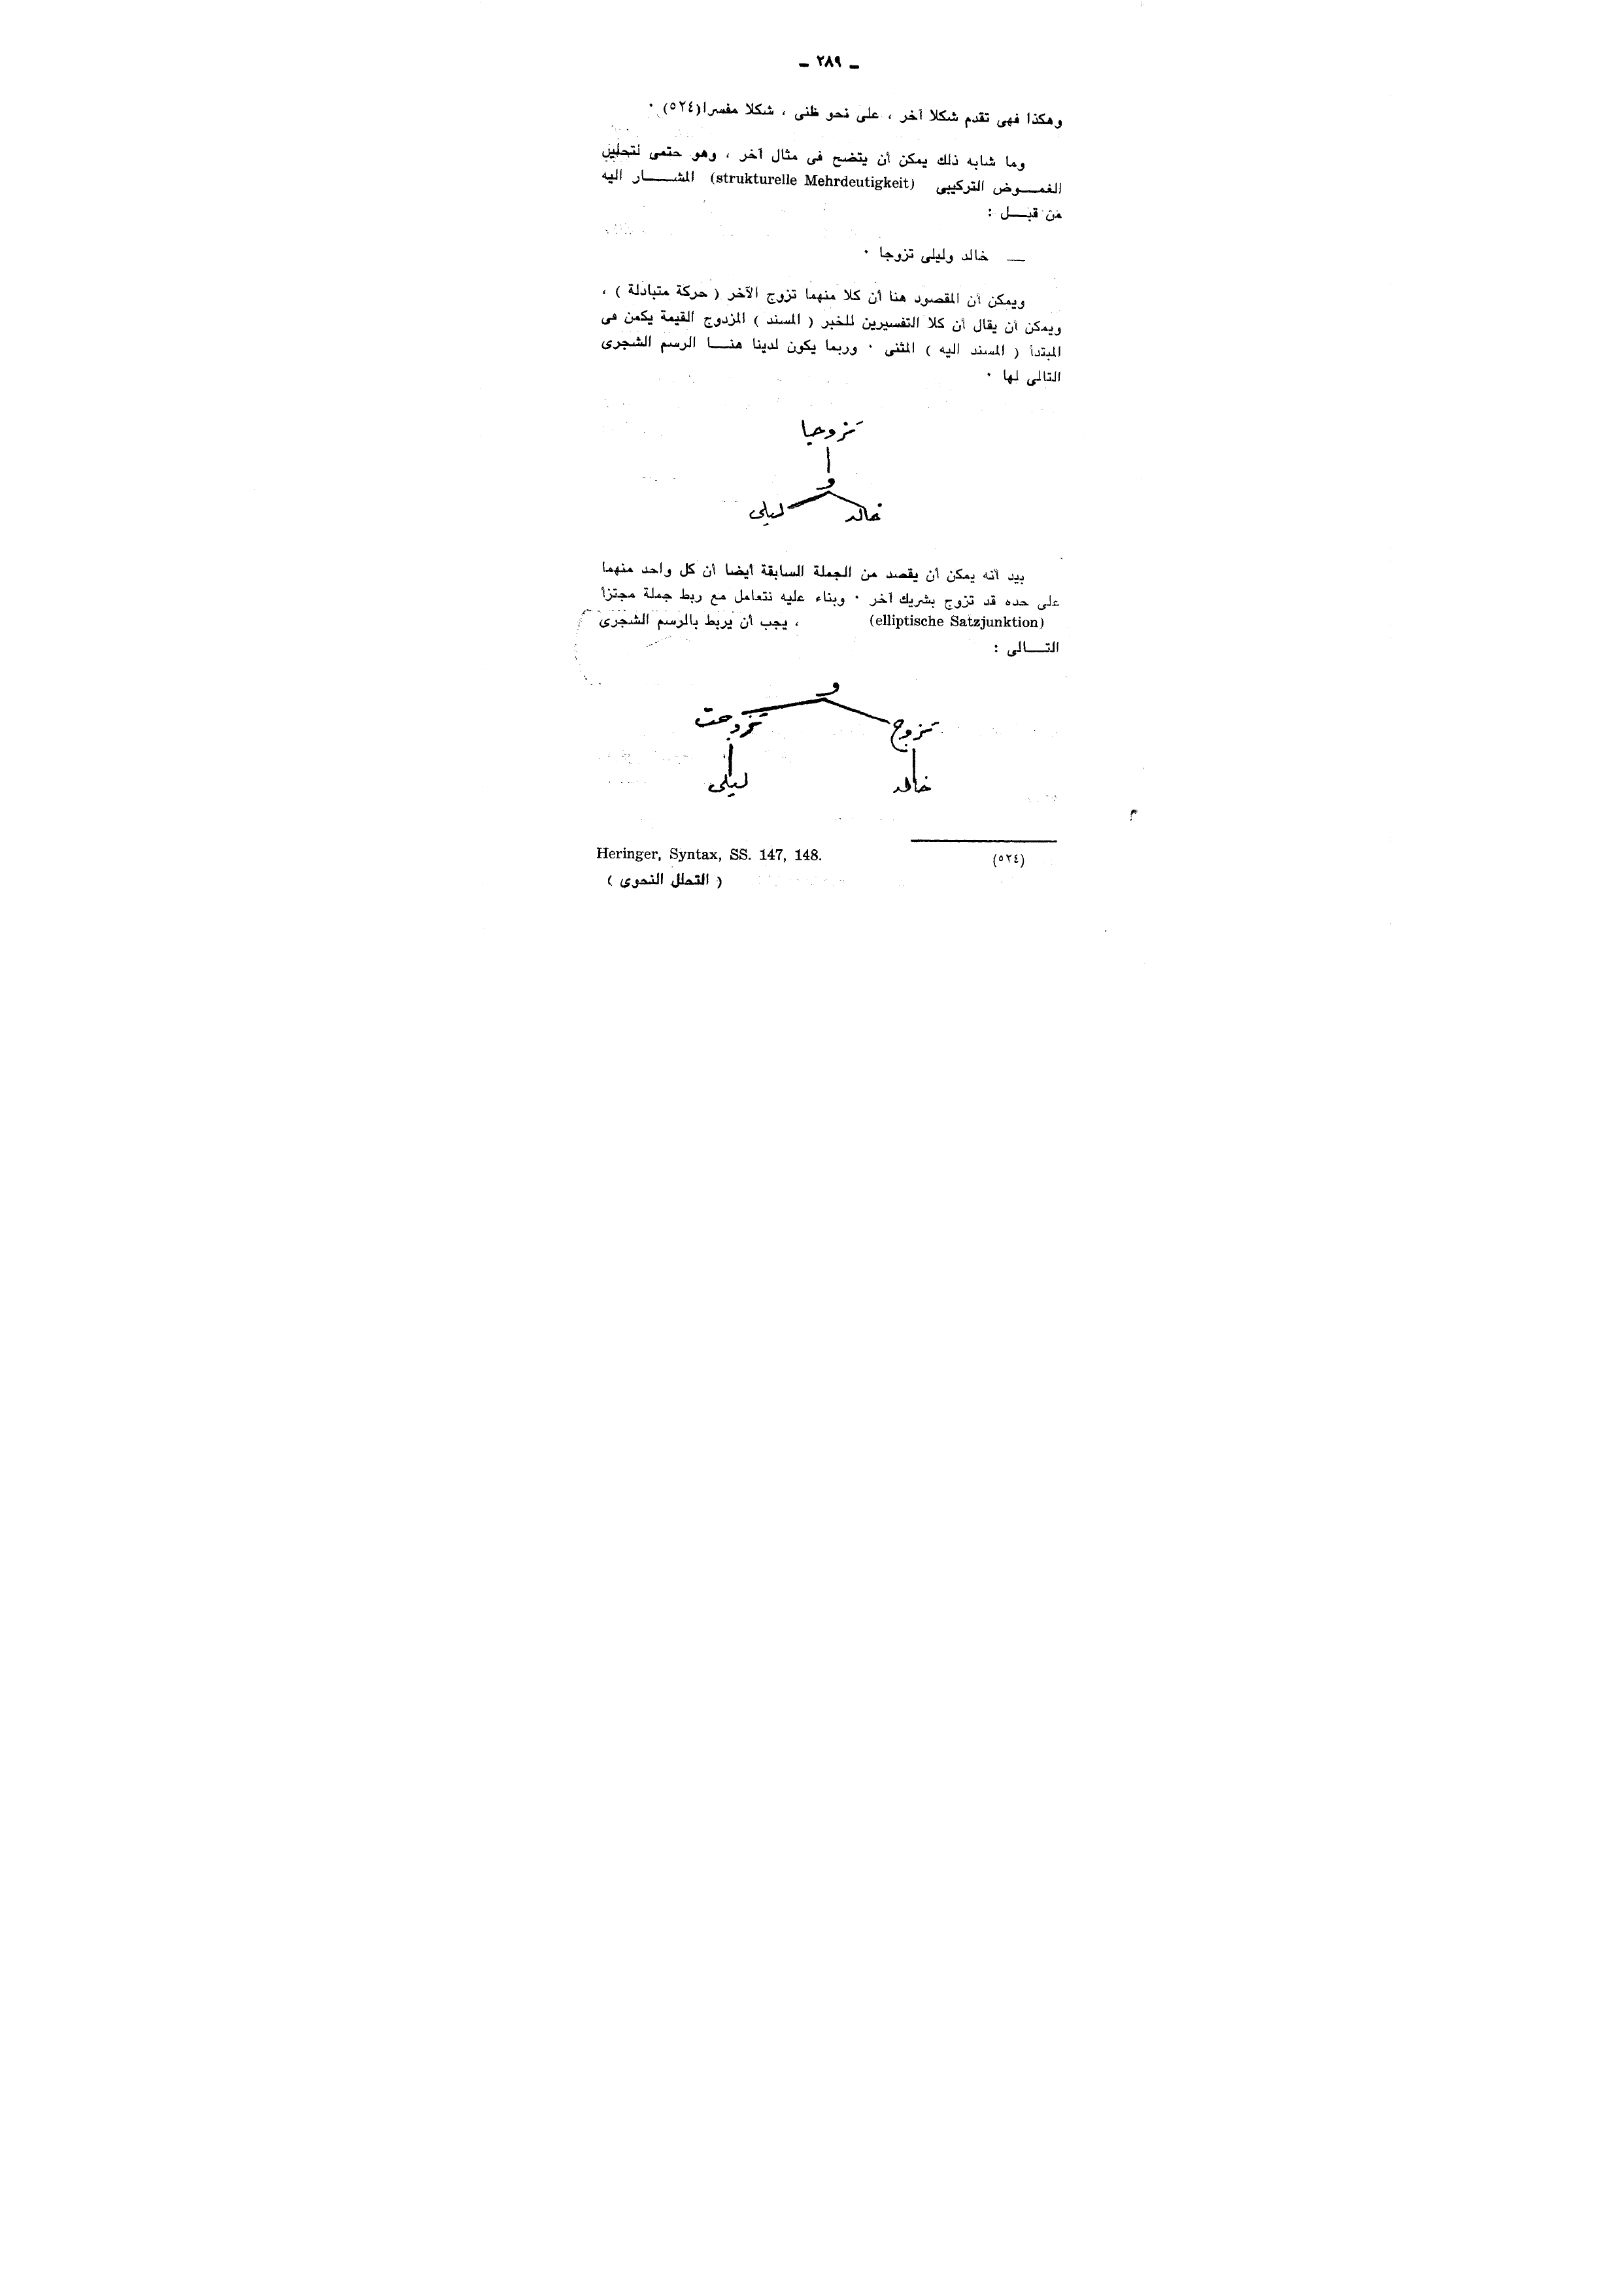 ـ ٢٨٩ ـ
وهكذا فهى تقدم شكلا آخر ، على نحو ظنى ، شكلا مفسرا(٥٢٤) ٠
وما شابه ذلك يمكن أن يتضح فى مثال آخر ، وهو حتمى لتحليل
الغمـــوض التركيبى (strukturelle Mehrdeutigkeit) المشـــار اليه
من قبـــل :
— خالد وليلى تزوجا ٠
ويمكن أن المقصود هنا أن كلا منهما تزوج الآخر ( حركة متبادلة ) ،
ويمكن أن يقال أن كلا التفسيرين للخبر ( المسند ) المزدوج القيمة يكمن فى
المبتدأ ( المسند اليه ) المثنى ٠ وربما يكون لدينا هنـــا الرسم الشجرى
التالى لها ٠
تزوجا
و
خالد ليلى
بيد أنه يمكن أن يقصد من الجملة السابقة أيضا أن كل واحد منهما
على حده قد تزوج بشريك آخر ٠ وبناء عليه نتعامل مع ربط جملة مجتزأ
(elliptische Satzjunktion) ، يجب أن يربط بالرسم الشجرى
التـــالى :
و
تزوج تزوجت
خالد ليلى
(٥٢٤) Heringer, Syntax, SS. 147, 148.
( التحلل النحوى )